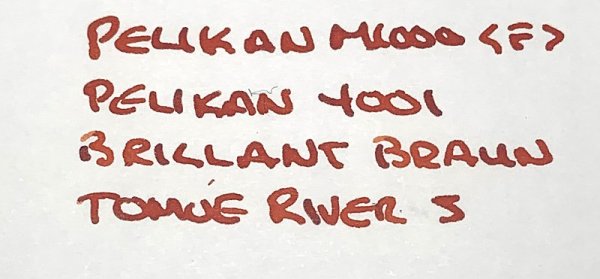 PELIKAN M1000 <F>
PELIKAN 4001
BRILLANT BRAUN
TOMOÉ RIVER S